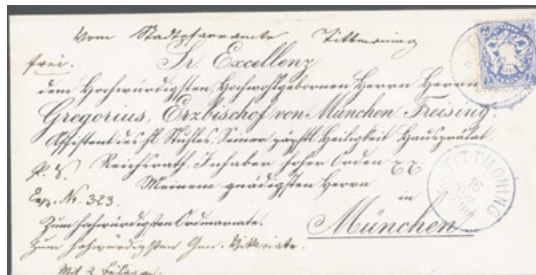 Vom Stadtpfarramte Tittmoning
frei.
Sr. Excellenz
dem Hochwürdigsten, Hochwohlgebornen Herrn Herrn
Gregorius, Erzbischof von München-Freising,
Assistent des hl. Stuhles, Seiner päpstl. Heiligkeit Hausprälat,
Reichsrath, Inhaber hoher Orden
Meinem gnädigsten Herrn
Exp. Nr. 323.
in
Zum hochwürdigsten Ordinariate.
München
Zum hochwürdigsten Gen. Vikariate.
Mit 2 Beilagen
TITTMONING